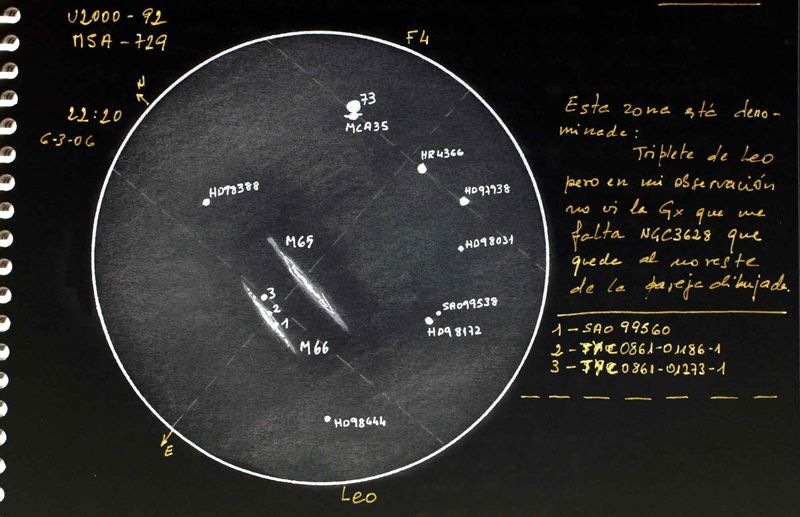 U2000-92
MSA-729
F4
N
22:20
6-3-06
73
MCA35
HR4366
HD98388
HD97938
M65
HD98031
3
2
1
SAO99538
HD98172
M66
HD98644
E
Leo
Esta zona está deno-
minada:
Triplete de Leo
pero en mi observación
no vi la Gx que me
falta NGC3628 que
quede al noreste
de la pareja dibujada.
1-SAO 99560
2-TYC0861-01186-1
3-TYC0861-01273-1